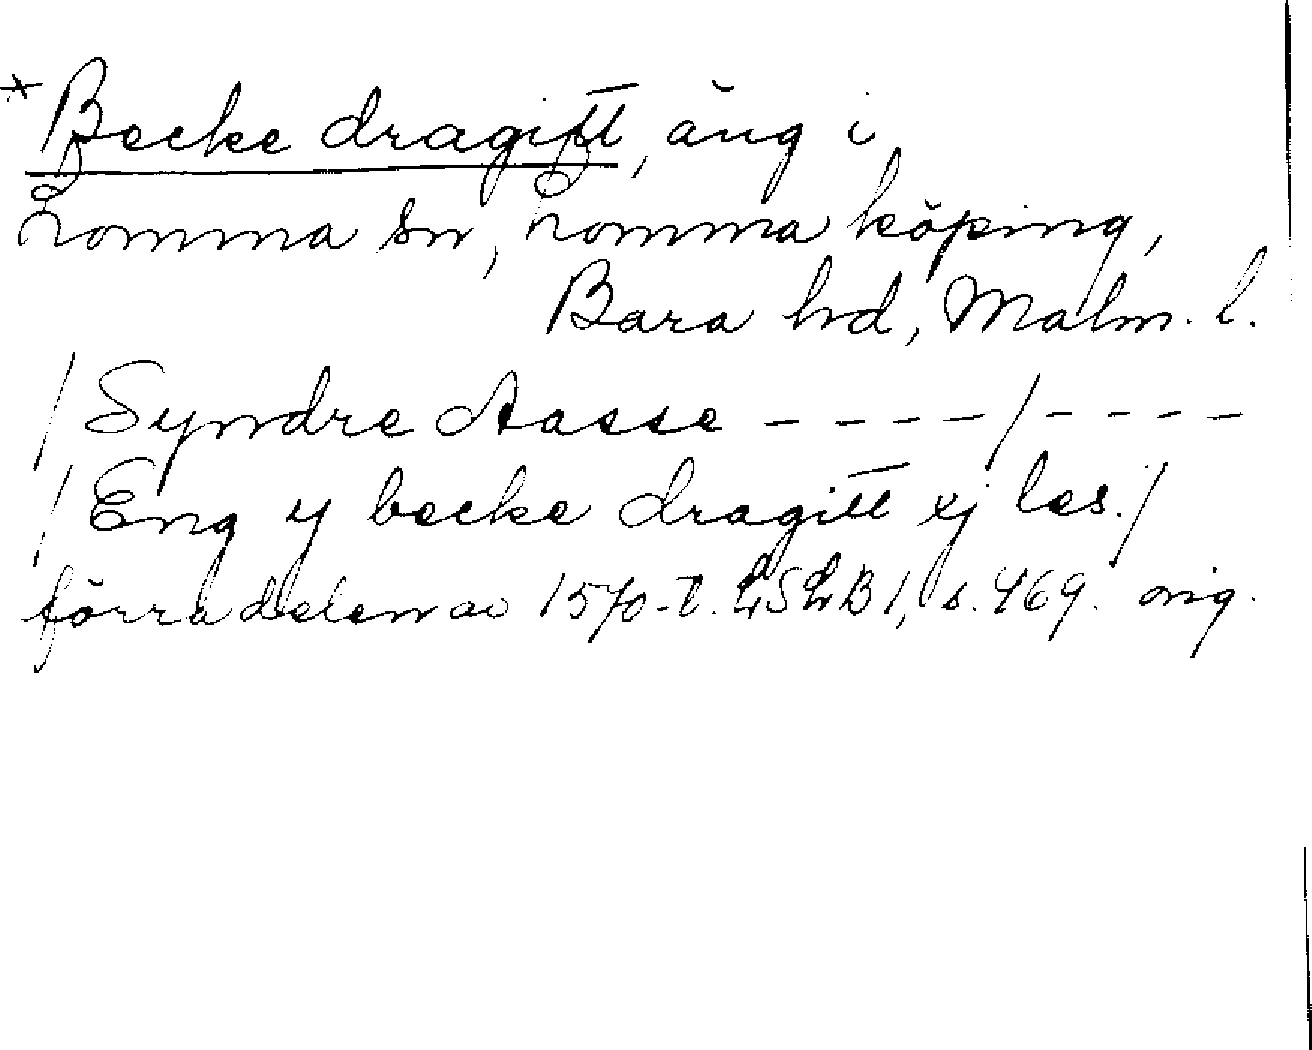 * Becke dragitt, äng i
Lomma sn, Lomma köping,
Bara hd, Malm. l.
/ Syndre Aasse - - - - / - - - -
/ Eng y becke dragitt xj les. /
förra delen av 1570-t. LSLB 1, s. 469. orig.